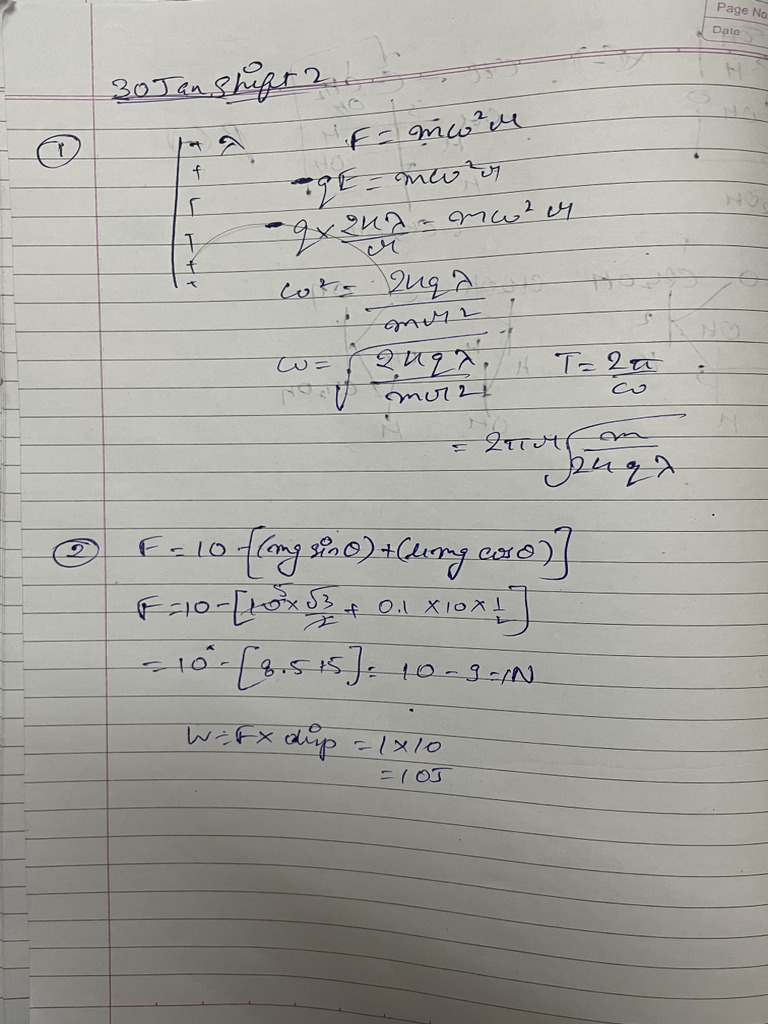 Page No
Date
30 Jan Shift 2
① + λ F = mω²r
-qE = mω²r
-q × 2kλ/r = mω²r
ω² = 2kqλ/mr²
ω = √(2kqλ/mr²) T = 2π/ω
= 2πr√(m/2kqλ)
② F = 10 - [(mg sinθ) + (μmg cosθ)]
F = 10 - [10 5 × √3/2 + 0.1 × 10 × 1/2]
= 10 - [8.5 + 5] = 10 - 9 = 1N
W = F × disp = 1 × 10
= 10J